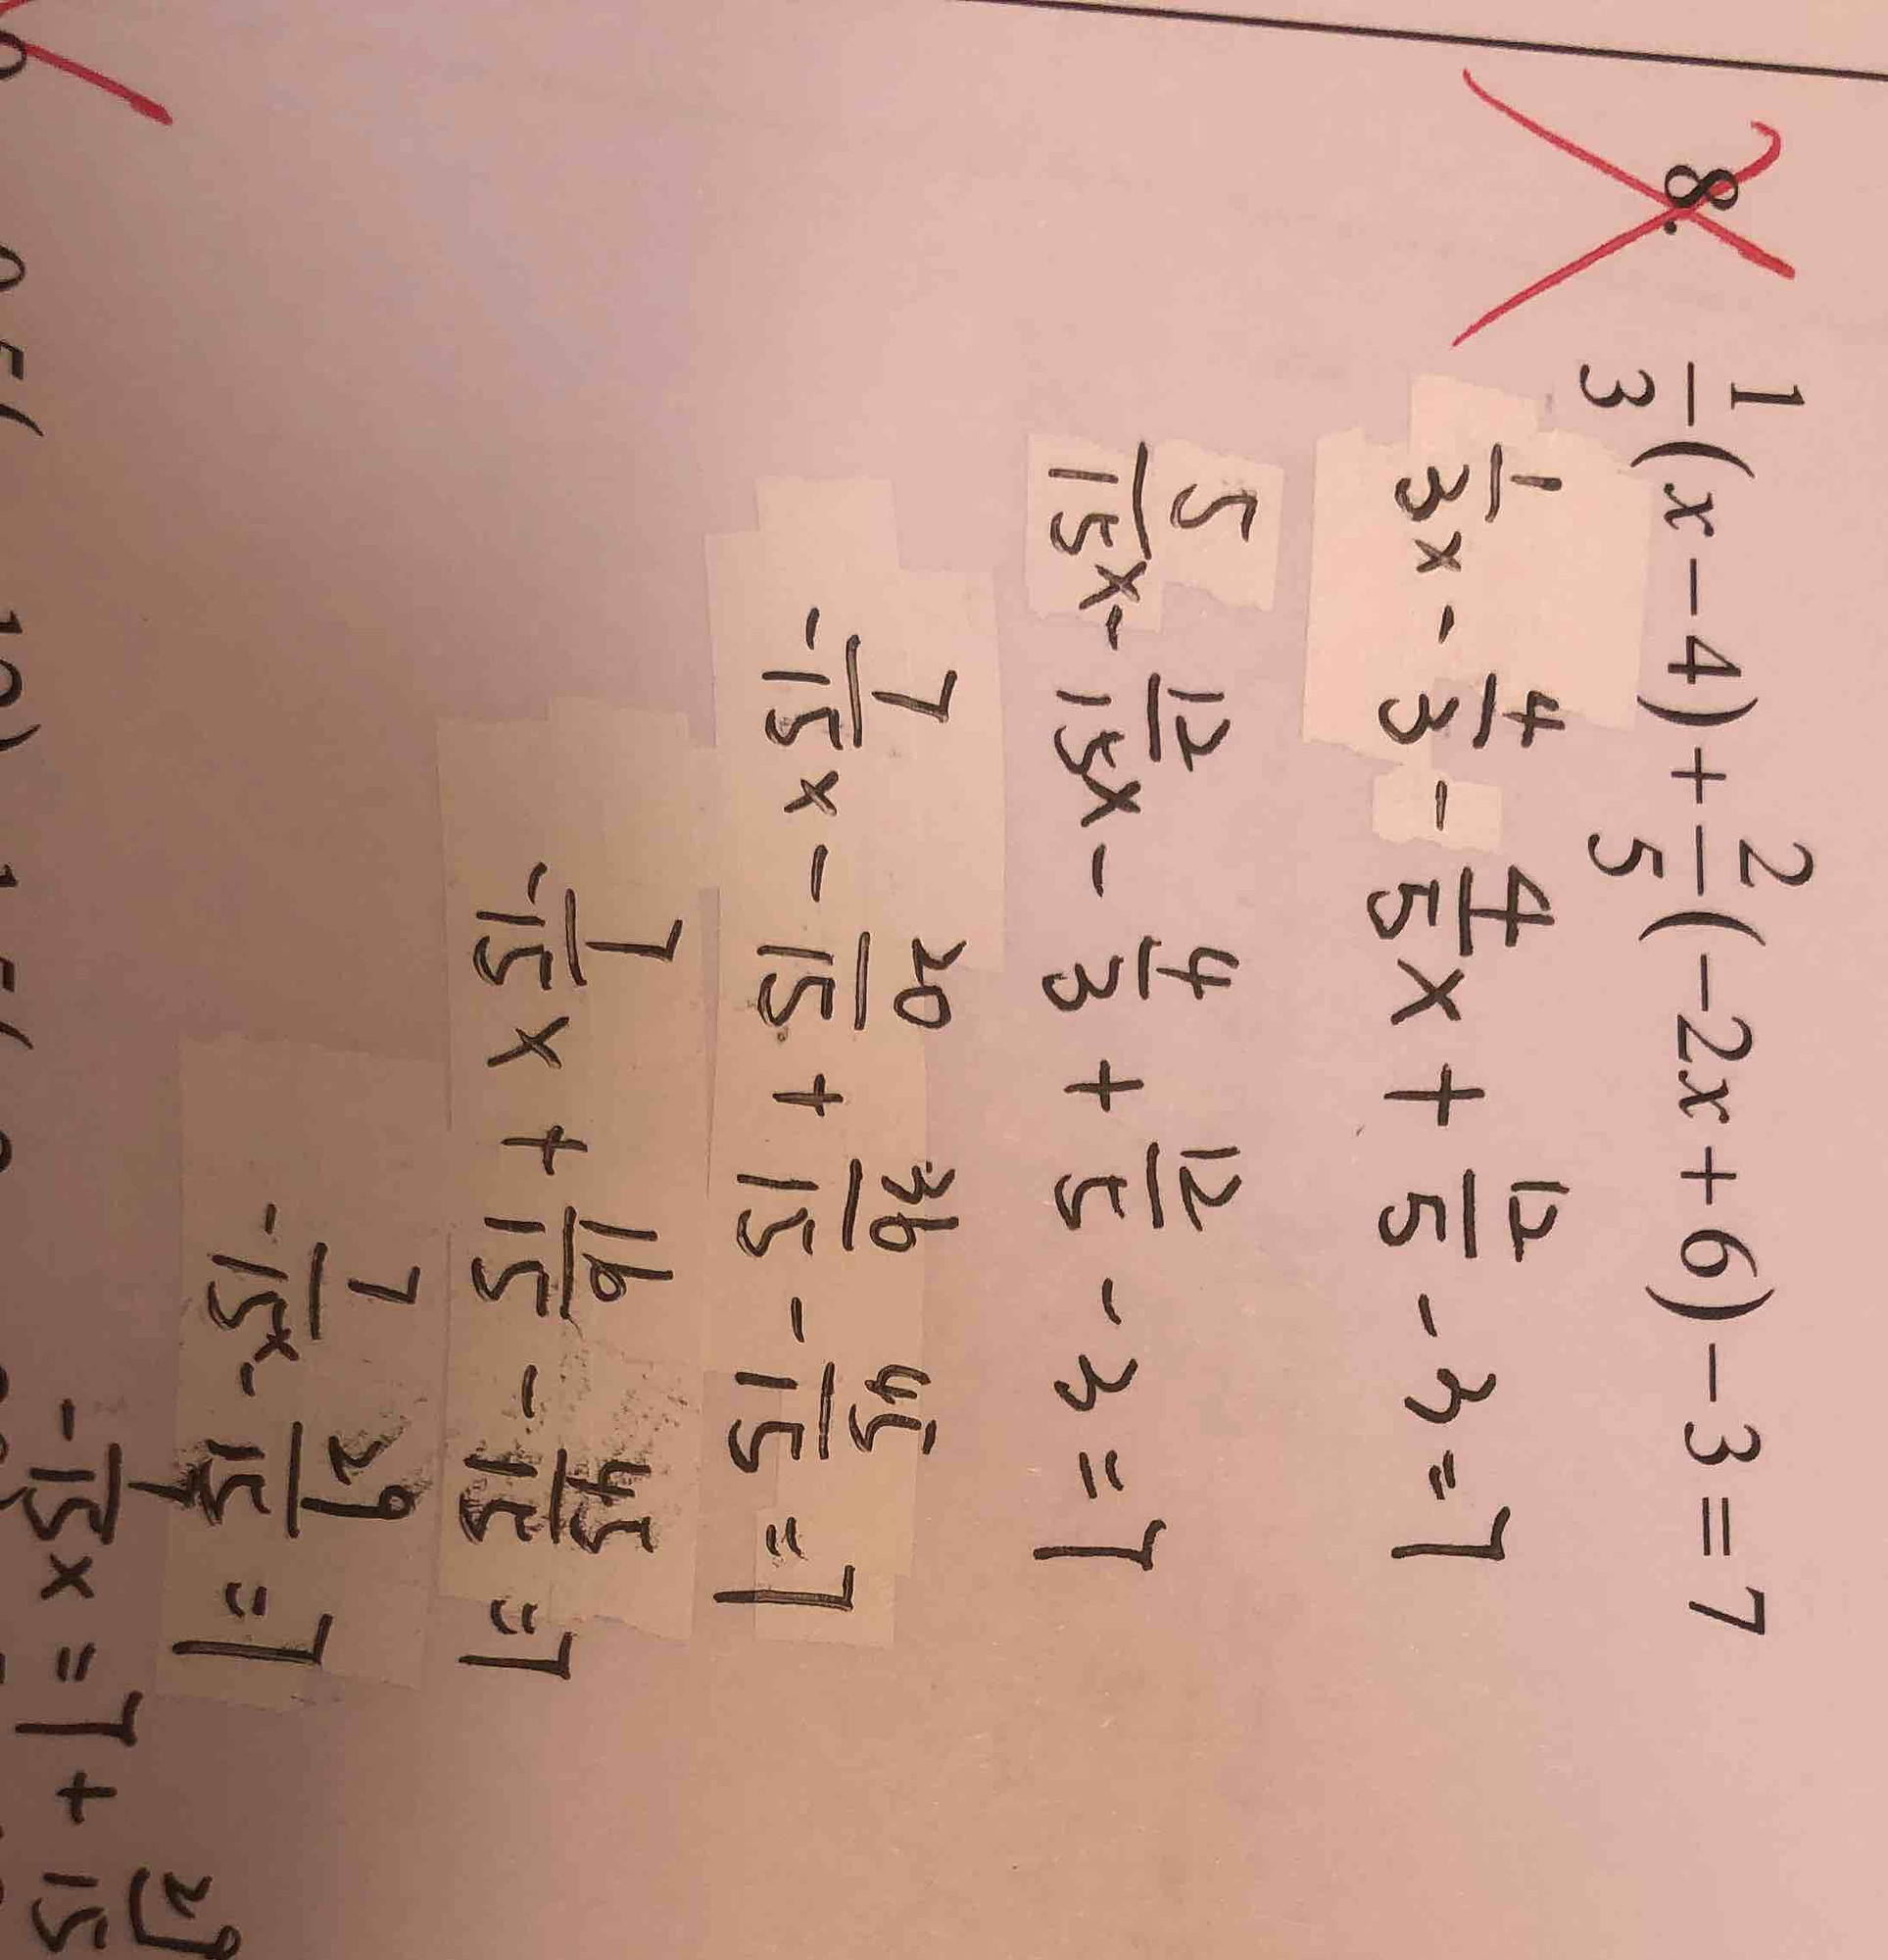 8. \frac{1}{3}(x-4)+\frac{2}{5}(-2x+6)-3=7
\frac{1}{3}x-\frac{4}{3}-\frac{4}{5}x+\frac{12}{5}-3=7
\frac{5}{15}x-\frac{12}{15}x-\frac{4}{3}+\frac{12}{5}-3=7
-\frac{7}{15}x-\frac{20}{15}+\frac{36}{15}-\frac{45}{15}=7
-\frac{7}{15}x+\frac{16}{15}-\frac{45}{15}=7
-\frac{7}{15}x-\frac{29}{15}=7
-\frac{7}{15}x=7+\frac{29}{15}